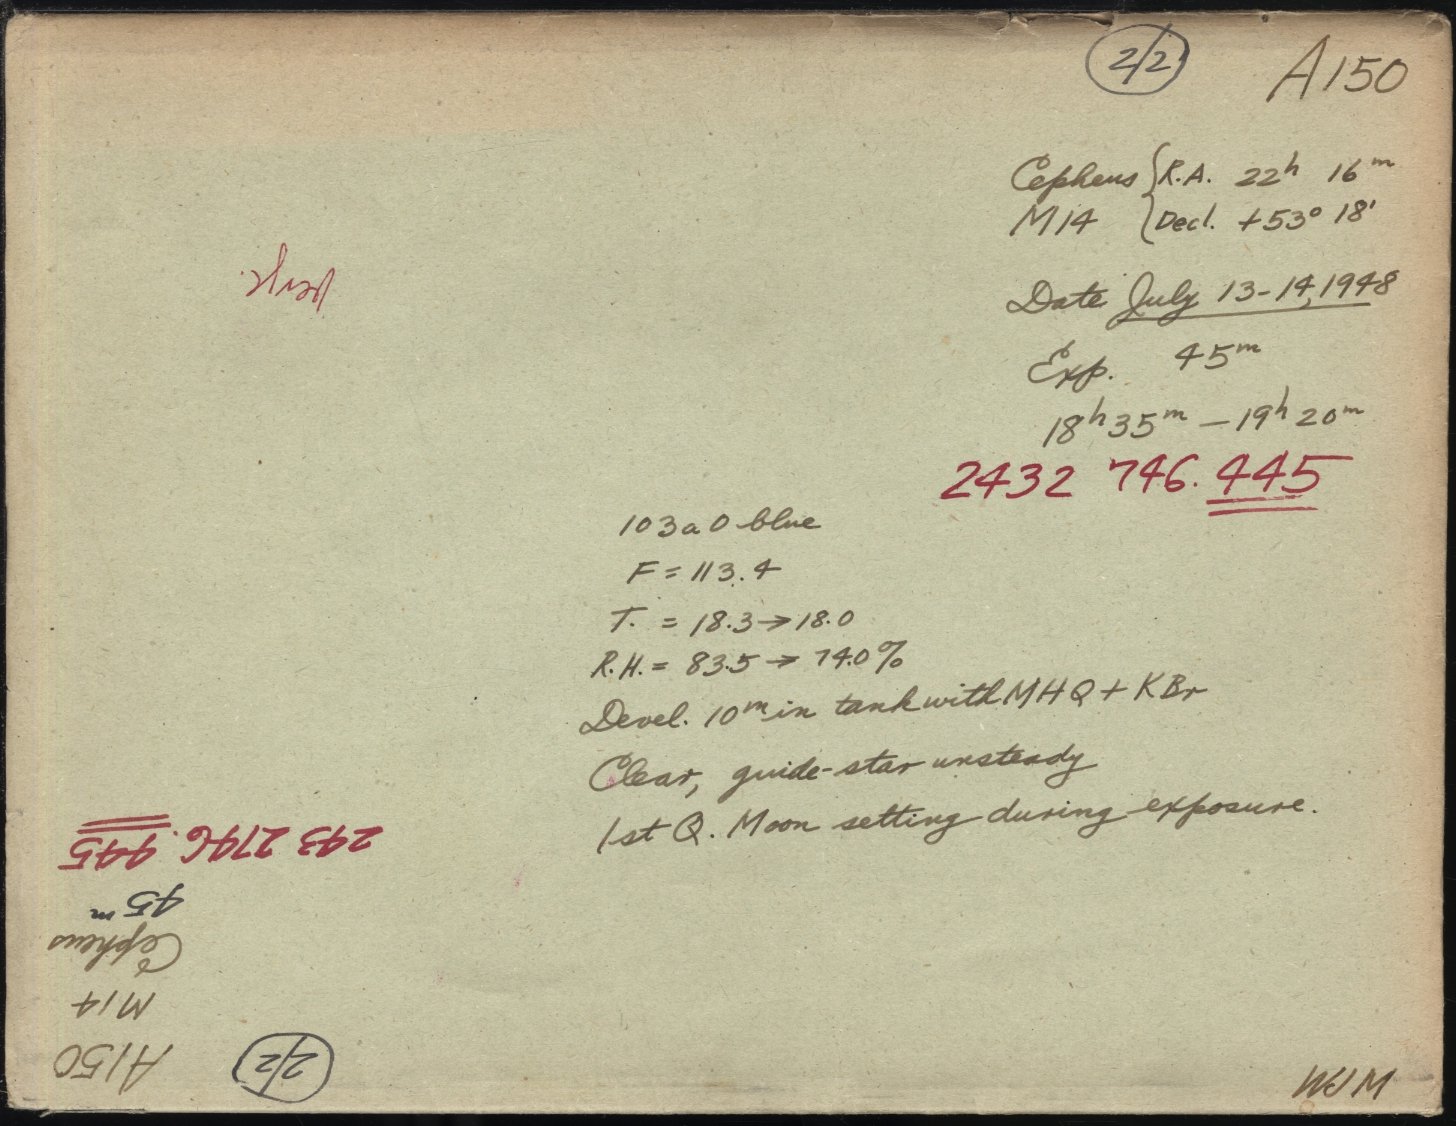 2/2
A150
Cepheus { R.A. 22h 16m
M14 { Decl. +53° 18'
Date July 13-14, 1948
Exp. 45m
18h 35m – 19h 20m
2432 746.445
103a0 blue
F = 113.4
T. = 18.3 → 18.0
R.H. = 83.5 → 74.0%
Devel. 10m in tank with MHQ + KBr
Clear, guide-star unsteady
1st Q. Moon setting during exposure.
2/2
A150
M14
Cepheus
45m
243 2746.445